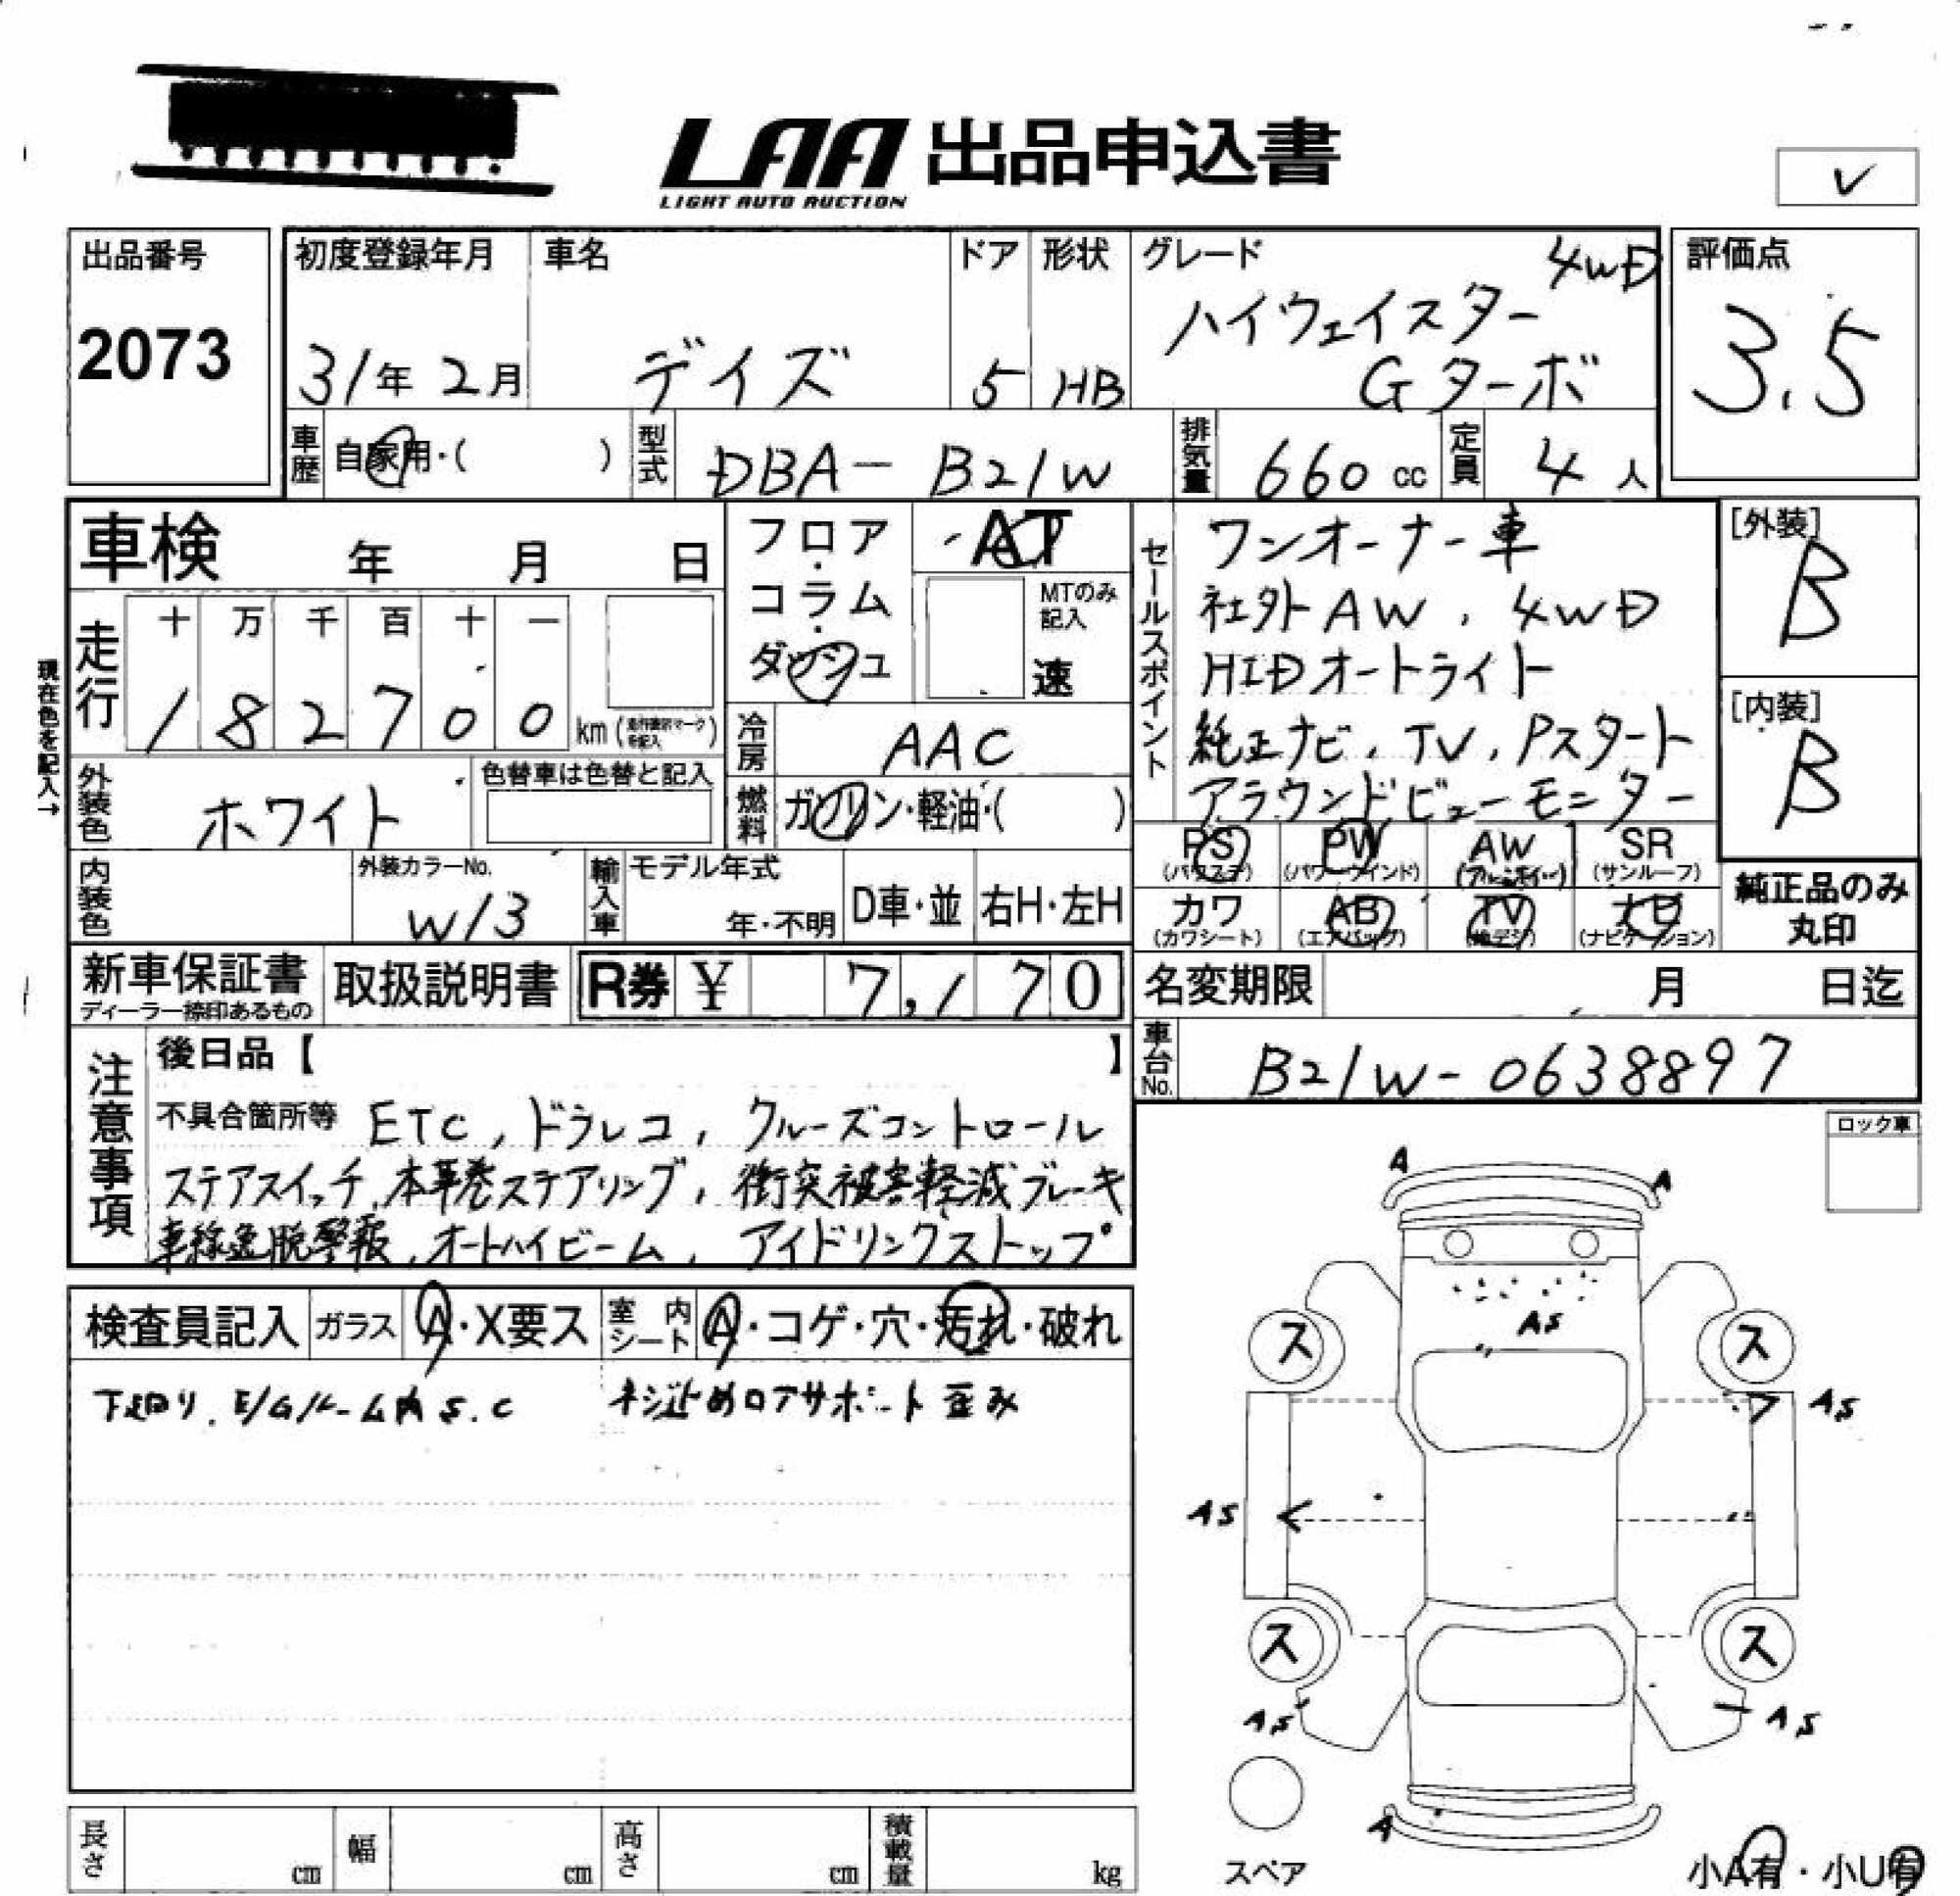 LAA 出品申込書
LIGHT AUTO AUCTION
出品番号
2073
初度登録年月
31年 2月
車名
デイズ
ドア
5
形状
HB
グレード
4WD
ハイウェイスター
Gターボ
評価点
3.5
車歴
自家用・( )
型式
DBA- B21W
排気量
660 cc
定員
4 人
車検 年 月 日
フロア・コラム・ダッシュ
AT
MTのみ記入
速
セールスポイント
ワンオーナー車
社外AW, 4WD
HIDオートライト
純正ナビ, TV, Pスタート
アラウンドビューモニター
[外装]
B
[内装]
B
走行
十 万 千 百 十 一
1 8 2 7 0 0 km
現在色を記入→
外装色
ホワイト
色替車は色替と記入
冷房
AAC
燃料
ガソリン・軽油・( )
PS (パワステ)
PW (パワーウインド)
AW (アルミホイール)
SR (サンルーフ)
カワ (カワシート)
AB (エアバッグ)
TV (地デジ)
ナビ (ナビゲーション)
純正品のみ
丸印
内装色
外装カラーNo.
W13
輸入車
モデル年式
年・不明
D車・並
右H・左H
新車保証書
ディーラー捺印あるもの
取扱説明書
R券 ¥ 7,170
名変期限 月 日迄
車台No.
B21W-0638897
注意事項
後日品【 】
不具合箇所等 ETC, ドラレコ, クルーズコントロール
ステアスイッチ, 本革巻ステアリング, 衝突被害軽減ブレーキ
車線逸脱警報, オートハイビーム, アイドリングストップ
ロック車
検査員記入
ガラス A・X要ス
室内シート A・コゲ・穴・汚れ・破れ
下回り, E/Gルーム内 S.C ネジ止めロアサポート歪み
A
A
AS
ス
ス
AS
AS
ス
ス
AS
AS
A
スペア
小A有・小U有
長さ cm
幅 cm
高さ cm
積載量 kg